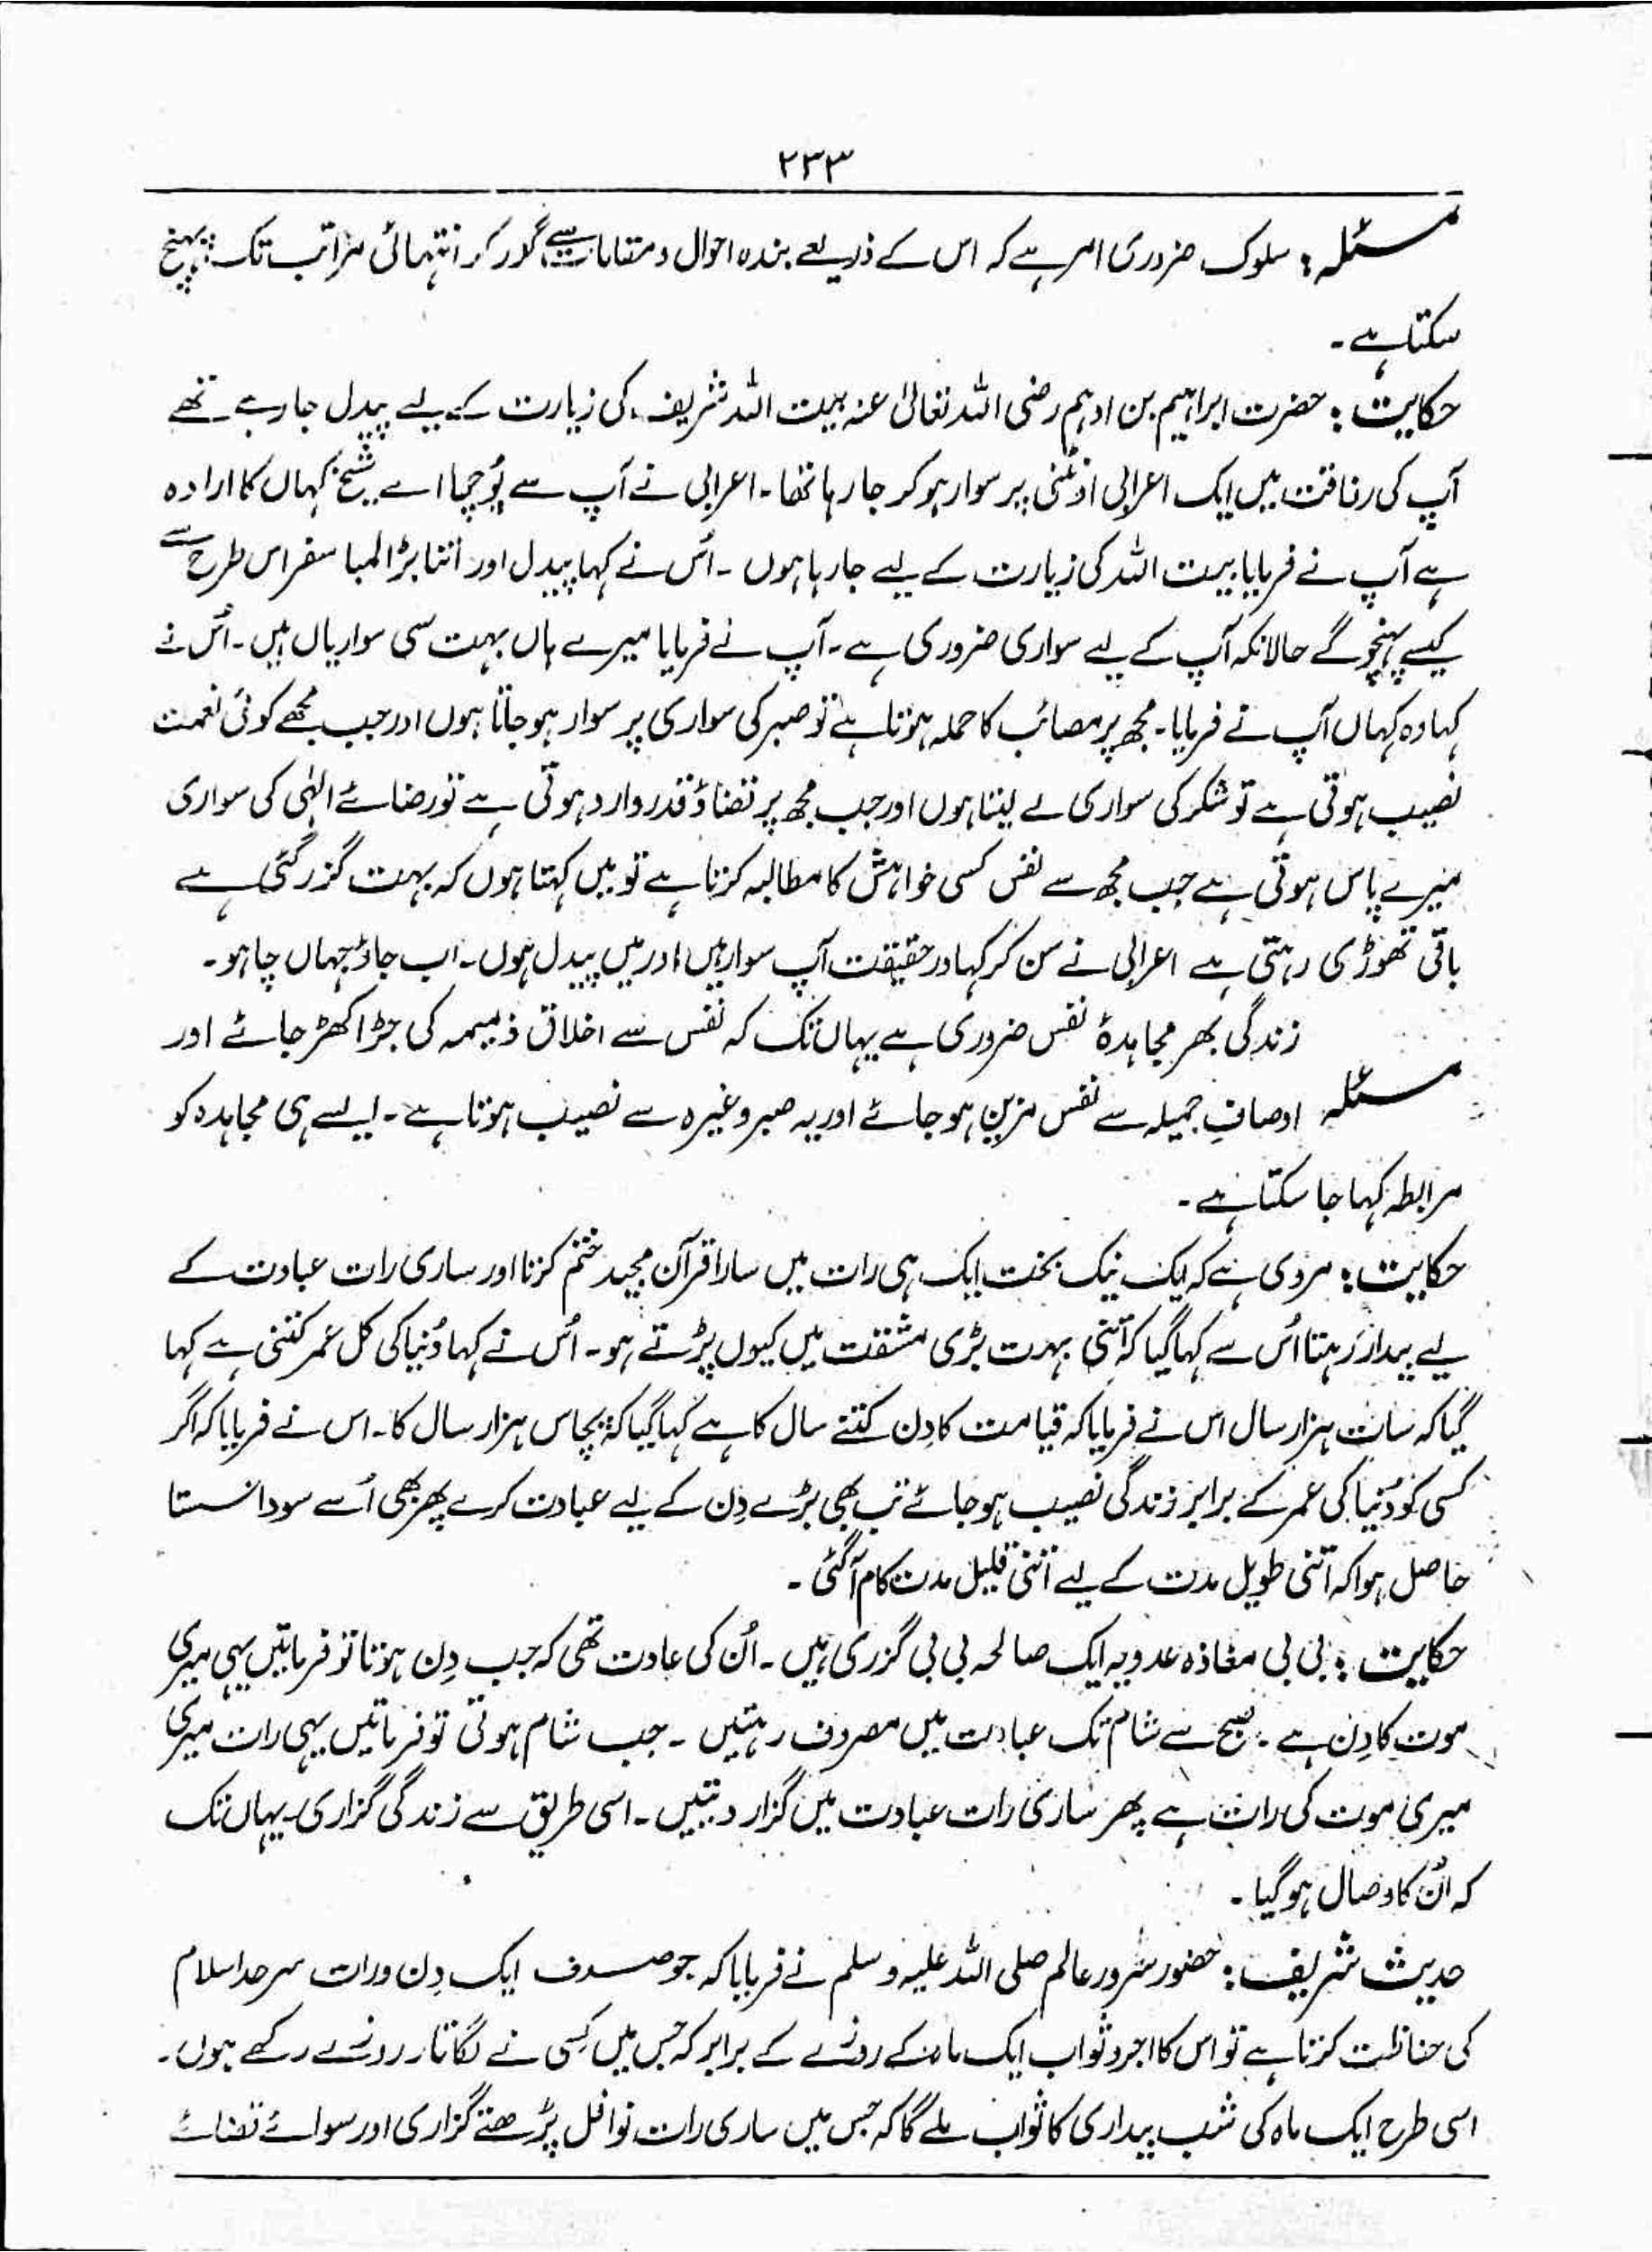 ۲۳۳
مسئلہ : سلوک ضروری امر ہے کہ اس کے ذریعے بندہ احوال و مقامات سے گزر کر انتہائی مراتب تک پہنچ
سکتا ہے ۔
حکایت : حضرت ابراہیم بن ادہم رضی اللہ تعالیٰ عنہ بیت اللہ شریف کی زیارت کے لیے پیدل جا رہے تھے
آپ کی رفاقت میں ایک اعرابی اونٹنی پر سوار ہو کر جا رہا تھا ۔ اعرابی نے آپ سے پُوچھا اے شیخ کہاں کا ارادہ
ہے آپ نے فرمایا بیت اللہ کی زیارت کے لیے جا رہا ہوں ۔ اُس نے کہا پیدل اور اتنا بڑا لمبا سفر اس طرح سے
کیسے پہنچو گے حالانکہ آپ کے لیے سواری ضروری ہے ۔ آپ نے فرمایا میرے ہاں بہت سی سواریاں ہیں ۔ اُس نے
کہا وہ کہاں آپ نے فرمایا ۔ مجھ پر مصائب کا حملہ ہوتا ہے تو صبر کی سواری پر سوار ہو جاتا ہوں اور جب مجھے کوئی نعمت
نصیب ہوتی ہے تو شکر کی سواری لے لیتا ہوں اور جب مجھ پر قضاؤ قدر وارد ہوتی ہے تو رضائے الٰہی کی سواری
میرے پاس ہوتی ہے جب مجھ سے نفس کسی خواہش کا مطالبہ کرتا ہے تو میں کہتا ہوں کہ بہت گزر گئی ہے
باقی تھوڑی رہتی ہے اعرابی نے سن کر کہا در حقیقت آپ سوار ہیں اور میں پیدل ہوں ۔ اب جاؤ جہاں چاہو ۔
زندگی بھر مجاہدۂ نفس ضروری ہے یہاں تک کہ نفس سے اخلاق ذمیمہ کی جڑ اکھڑ جائے اور
مسئلہ اوصافِ جمیلہ سے نفس مزین ہو جائے اور یہ صبر وغیرہ سے نصیب ہوتا ہے ۔ ایسے ہی مجاہدہ کو
مرابطہ کہا جا سکتا ہے ۔
حکایت : مروی ہے کہ ایک نیک بخت ایک ہی رات میں سارا قرآن مجید ختم کرتا اور ساری رات عبادت کے
لیے بیدار رہتا اُس سے کہا گیا کہ اتنی بہت بڑی مشقت میں کیوں پڑتے ہو ۔ اُس نے کہا دُنیا کی کل عمر کتنی ہے کہا
گیا کہ سات ہزار سال اس نے فرمایا کہ قیامت کا دِن کتنے سال کا ہے کہا گیا کہ پچاس ہزار سال کا ۔ اس نے فرمایا کہ اگر
کسی کو دُنیا کی عمر کے برابر زندگی نصیب ہو جائے تب بھی بڑے دِن کے لیے عبادت کرے پھر بھی اُسے سودا سستا
حاصل ہوا کہ اتنی طویل مدت کے لیے اتنی قلیل مدت کام آ گئی ۔
حکایت : بی بی معاذہ عدویہ ایک صالحہ بی بی گزری ہیں ۔ اُن کی عادت تھی کہ جب دِن ہوتا تو فرماتیں یہی میری
موت کا دِن ہے ۔ صبح سے شام تک عبادت میں مصروف رہتیں ۔ جب شام ہوتی تو فرماتیں یہی رات میری
میری موت کی رات ہے پھر ساری رات عبادت میں گزار دیتیں ۔ اسی طریق سے زندگی گزاری یہاں تک
کہ اُن کا وصال ہو گیا ۔
حدیث شریف : حضور سرور عالم صلی اللہ علیہ وسلم نے فرمایا کہ جو صرف ایک دِن و رات سرحد اسلام
کی حفاظت کرتا ہے تو اس کا اجر و ثواب ایک ماہ کے روزے کے برابر کہ جس میں کسی نے لگاتار روزے رکھے ہوں ۔
اسی طرح ایک ماہ کی شب بیداری کا ثواب ملے گا کہ جس میں ساری رات نوافل پڑھتے گزاری اور سوائے قضائے